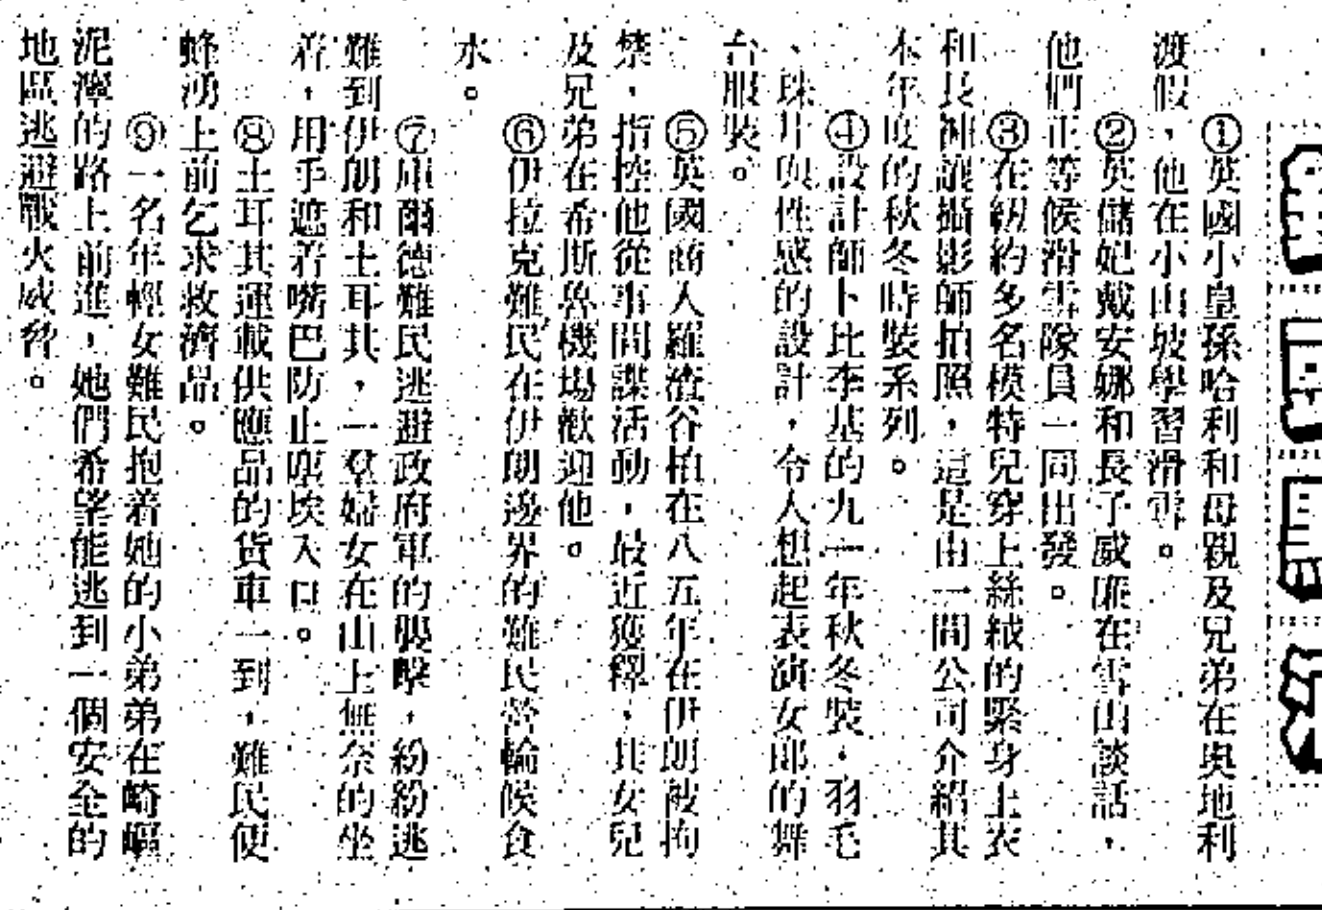 ①英國小皇孫哈利和母親及兄弟在奧地利
渡假，他在小山坡學習滑雪。
②英儲妃戴安娜和長子威廉在雪山談話，
他們正等候滑雪隊員一同出發。
③在紐約多名模特兒穿上絲絨的緊身上衣
和長褲讓攝影師拍照，這是由一間公司介紹其
本年度的秋冬時裝系列。
④設計師卜比李基的九一年秋冬裝，羽毛
、珠片與性感的設計，令人想起表演女郎的舞
台服裝。
⑤英國商人羅渣谷柏在八五年在伊朗被拘
禁，指控他從事間諜活動，最近獲釋，其女兒
及兄弟在希斯魯機場歡迎他。
⑥伊拉克難民在伊朗邊界的難民營輪候食
水。
⑦庫爾德難民逃避政府軍的襲擊，紛紛逃
難到伊朗和土耳其，一羣婦女在山上無奈的坐
着，用手遮着嘴巴防止塵埃入口。
⑧土耳其運載供應品的貨車一到，難民便
蜂湧上前乞求救濟品。
⑨一名年輕女難民抱着她的小弟弟在崎嶇
泥濘的路上前進，她們希望能逃到一個安全的
地區逃避戰火威脅。